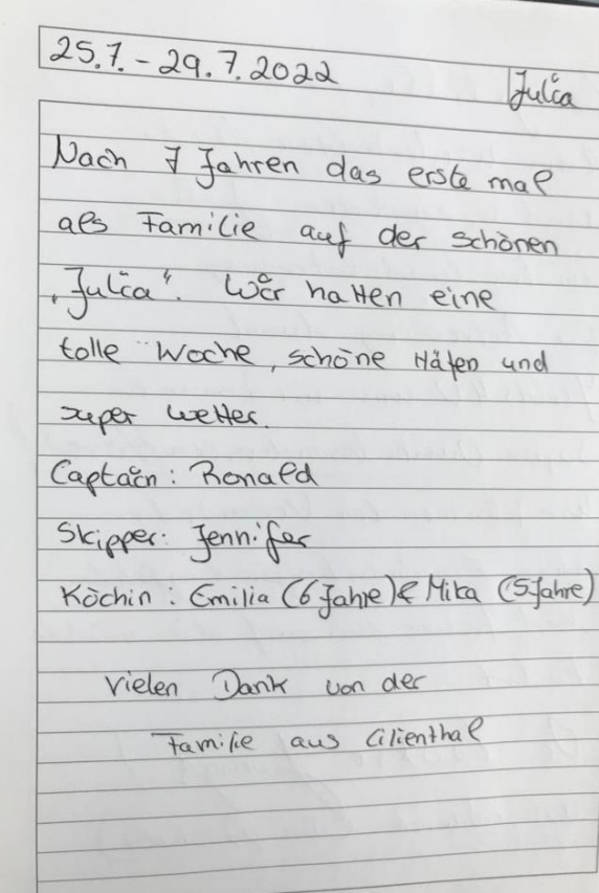 25.7. - 29.7.2022
Julia
Nach 7 Jahren das erste mal
als Familie auf der schönen
„Julia“. Wir hatten eine
tolle Woche, schöne Häfen und
super Wetter.
Captain: Ronald
Skipper: Jennifer
Köchin: Emilia (6 Jahre) & Mika (5 Jahre)
Vielen Dank von der
Familie aus Lilienthal